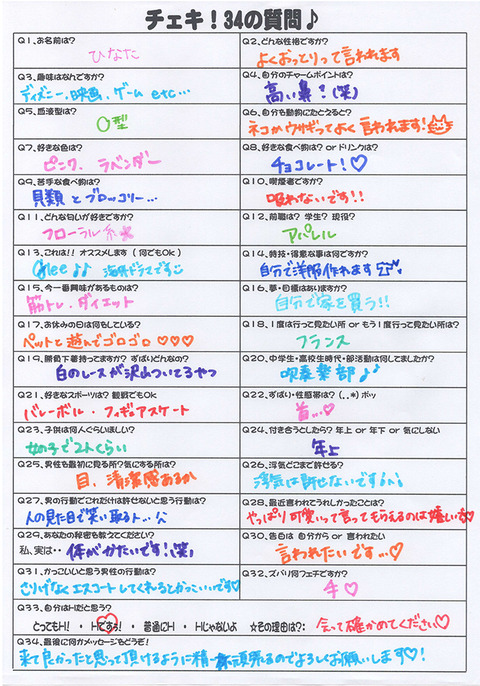 チェキ！34の質問♪
Q1、お名前は？
ひなた
Q2、どんな性格ですか？
よくおっとりって言われます
Q3、趣味はなんですか？
ディズニー、映画、ゲーム etc...
Q4、自分のチャームポイントは？
高い鼻！(笑)
Q5、血液型は？
O型
Q6、自分を動物にたとえると？
ネコかウサギってよく言われます！
Q7、好きな色は？
ピンク、ラベンダー
Q8、好きな食べ物は？ or ドリンクは？
チョコレート！♡
Q9、苦手な食べ物は？
貝類とブロッコリー…
Q10、喫煙者ですか？
吸わないです！！
Q11、どんな匂いが好きですか？
フローラル系
Q12、前職は？ 学生？ 現役？
アパレル
Q13、これは！！ オススメします（何でもOk）
Glee♪♪ 海外ドラマです
Q14、特技・得意な事は何ですか？
自分で洋服作れます
Q15、今一番興味があるものは？
筋トレ、ダイエット
Q16、夢・目標はありますか？
自分で家を買う！！
Q17、お休みの日は何もしている？
ペットと遊んでゴロゴロ ♡♡♡
Q18、1度は行って見たい所 or もう1度行って見たい所は？
フランス
Q19、勝負下着持ってますか？ ずばりどんなの？
白のレースが沢山ついてるやつ
Q20、中学生・高校生時代・部活動は何してましたか？
吹奏楽部♪♪
Q21、好きなスポーツは？ 観戦でもOK
バレーボール・フィギュアスケート
Q22、ずばい・性感帯は？（．．＊）ポッ
首…♡
Q23、子供は何人くらいほしい？
女の子で2人くらい
Q24、付き合うとしたら？ 年上 or 年下 or 気にしない
年上
Q25、男性を最初に見る所？気にする所は？
目、清潔感あるか
Q26、浮気どこまで許せる？
浮気は許せないです！
Q27、男の行動でこれだけは許せないと思う行動は？
人の見た目で笑い取る人…
Q28、最近言われてうれしかったことは？
やっぱり可愛いって言ってもらえるのは嬉しい♡
Q29、あなたの秘密を教えてください？
私、実は・・ 体がかたいです！(笑)
Q30、告白は 自分から or 言われたい
言われたいです…♡
Q31、かっこいいと思う男性の行動は？
さりげなくエスコートしてくれるとかっこいいです♡
Q32、ズバリ何フェチですか？
手♡
Q33、自分はHだと思う？
とってもH！ ・ Hですぅ！ ・ 普通にH ・ Hじゃないよ ☆その理由は？： 会って確かめてください♡
Q34、最後に何かメッセージもどうぞ！
来て良かったと思って頂けるように精一杯頑張るのでよろしくお願いします♡！